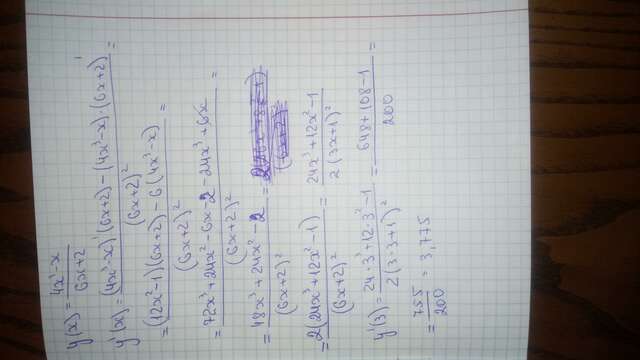 y(x) = (4x³-x)/(6x+2)
y'(x) = ((4x³-x)'(6x+2)-(4x³-x)·(6x+2)')/(6x+2)² =
= ((12x²-1)(6x+2)-6(4x³-x))/(6x+2)² =
= (72x³+24x²-6x-2-24x³+6x)/(6x+2)² =
= (48x³+24x²-2)/(6x+2)² =
= 2(24x³+12x²-1)/(6x+2)² = (24x³+12x²-1)/(2(3x+1)²)
y'(3) = (24·3³+12·3²-1)/(2(3·3+1)²) = (648+108-1)/200 =
= 755/200 = 3,775